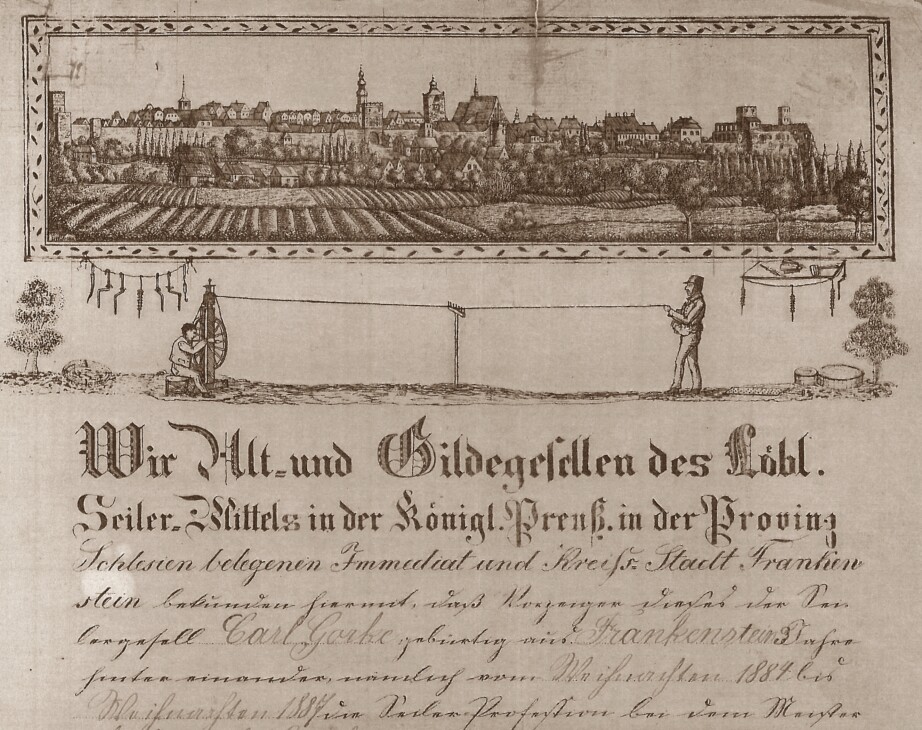 Wir Alt- und Gildegesellen des Löbl.
Seiler-Mittels in der Königl. Preuß. in der Provinz
Schlesien belegenen Immediat und Kreiß-Stadt Franken
stein bekunden hiermit, daß Vorzeiger dieses der Sei-
lergesell Carl gebürtig aus Frankenstein 3 Jahre
hinter einander, nämlich vom Weihnachten 1884 bis
Weihnachten 1887 die Seiler-Profession bei dem Meister